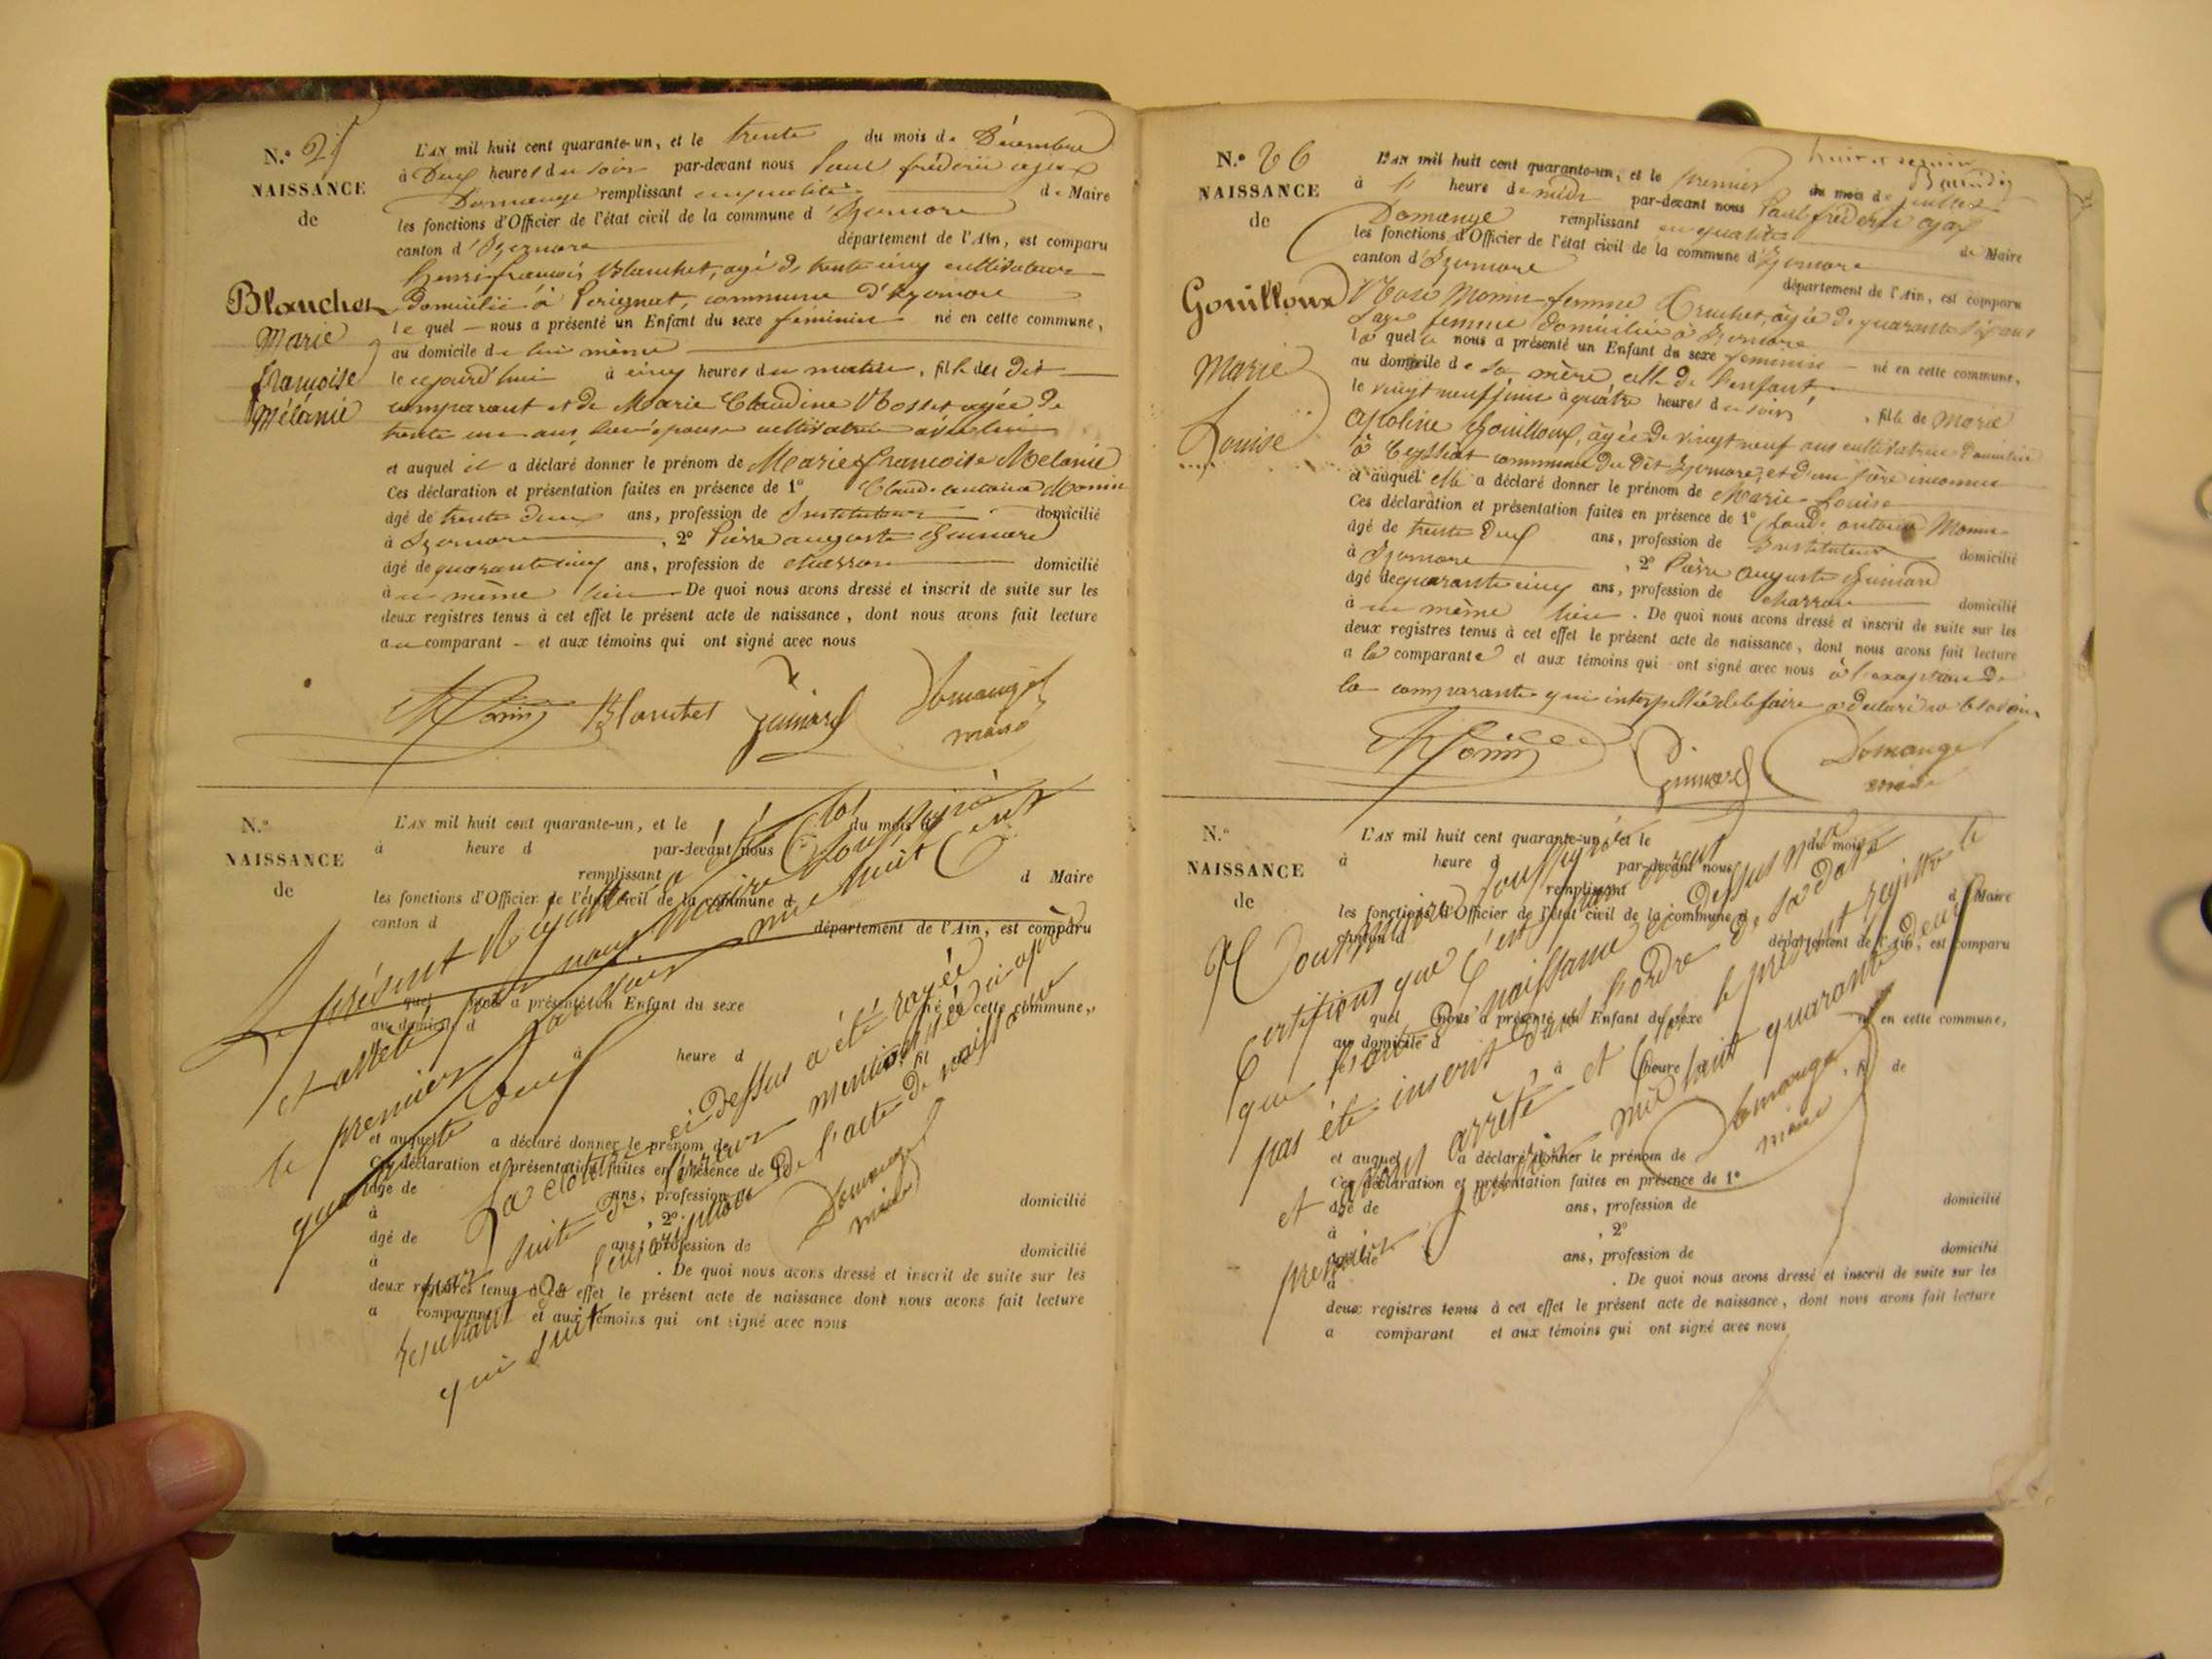 N.° 25
NAISSANCE
de
Blanchet
Marie
françoise
Mélanie
L'AN mil huit cent quarante-un, et le trente du mois de Décembre
à Deux heures du soir par-devant nous Paul fréderic ajax
Domange remplissant en qualité de Maire
les fonctions d'Officier de l'état civil de la commune d'Izernore
canton d'Izernore département de l'Ain, est comparu
henri françois Blanchet, agé de trente cinq cultivateur
domicilié à Perignat, commune d'Izernore
le quel nous a présenté un Enfant du sexe feminin né en cette commune,
au domicile de lui même
le aujourd'hui à cinq heures du matin, fille du dit
comparant et de Marie Claudine Rosset agée de
trente un ans, son épouse cultivatrice avec lui
et auquel il a déclaré donner le prénom de Marie françoise Melanie
Ces déclaration et présentation faites en présence de 1° Claude antoine Monin
âgé de trente deux ans, profession de Instituteur domicilié
à Izernore, 2° Pierre auguste Guinard
âgé de quarante cinq ans, profession de charron domicilié
à ce même lieu De quoi nous avons dressé et inscrit de suite sur les
deux registres tenus à cet effet le présent acte de naissance, dont nous avons fait lecture
au comparant et aux témoins qui ont signé avec nous
Monin Blanchet Guinard Domange
maire
N.°
NAISSANCE
de
L'AN mil huit cent quarante-un, et le du mois de
à heure d par-devant nous
remplissant d Maire
les fonctions d'Officier de l'état civil de la commune d
canton d département de l'Ain, est comparu
quel nous a présenté un Enfant du sexe né en cette commune,
au domicile d
à heure d , fil
et auquel a déclaré donner le prénom de
Ces déclaration et présentation faites en présence de 1°
âgé de ans, profession de domicilié
à , 2°
âgé de ans, profession de domicilié
à . De quoi nous avons dressé et inscrit de suite sur les
deux registres tenus à cet effet le présent acte de naissance dont nous avons fait lecture
a comparant et aux témoins qui ont signé avec nous
Le présent Régistre a été Clos
et arrêté par nous Maire Soussigné
le premier Janvier mil huit Cent
quarante deux
La cloture ci-dessus a été rayée
par suite de l'erreur mentionnée ci après
résultant de l'inscription de l'acte de naissance
qui suit
Domange
maire
N.° 26
NAISSANCE
de
Gouilloux
Marie
Louise
L'AN mil huit cent quarante-un, et le premier du mois de juillet
à heure de midi par-devant nous Paul fréderic ajax
Domange remplissant en qualité de Maire
les fonctions d'Officier de l'état civil de la commune d'Izernore
canton d'Izernore département de l'Ain, est comparu
Rose Monin femme Truchet, agée de quarante six ans
sage femme domiciliée à Izernore
la quelle nous a présenté un Enfant du sexe feminin né en cette commune,
au domicile de la mère, celle de l'enfant,
le vingt neuf juin à quatre heures du soir, fille de Marie
apoline Gouilloux, agée de vingt neuf ans cultivatrice domiciliée
à Ceyssiat commune du dit Izernore, et d'un père inconnu
et auquel elle a déclaré donner le prénom de Marie Louise
Ces déclaration et présentation faites en présence de 1° Claude antoine Monin
âgé de trente deux ans, profession de Instituteur domicilié
à Izernore, 2° Pierre auguste Guinard
âgé de quarante cinq ans, profession de charron domicilié
à ce même lieu. De quoi nous avons dressé et inscrit de suite sur les
deux registres tenus à cet effet le présent acte de naissance, dont nous avons fait lecture
a la comparante et aux témoins qui ont signé avec nous à l'exception de
la comparante qui interpellée de le faire a déclaré ne le savoir
Monin Guinard Domange
maire
N.°
NAISSANCE
de
L'AN mil huit cent quarante-un, et le du mois
à heure d par-devant nous
remplissant d Maire
les fonctions d'Officier de l'état civil de la commune d
canton d département de l'Ain, est comparu
quel nous a présenté un Enfant du sexe né en cette commune,
au domicile d
le à heure , fil de
et auquel a déclaré donner le prénom de
Ces déclaration et présentation faites en présence de 1°
âgé de ans, profession de domicilié
à , 2°
âgé de ans, profession de domicilié
à . De quoi nous avons dressé et inscrit de suite sur les
deux registres tenus à cet effet le présent acte de naissance, dont nous avons fait lecture
a comparant et aux témoins qui ont signé avec nous
Nous maire soussigné
Certifions que c'est par erreur
que l'acte de naissance ci dessus n'a
pas été inscrit dans l'ordre de sa date
et avons arrêté et Clos le présent registre le
premier Janvier mil huit quarante deux
Domange
maire